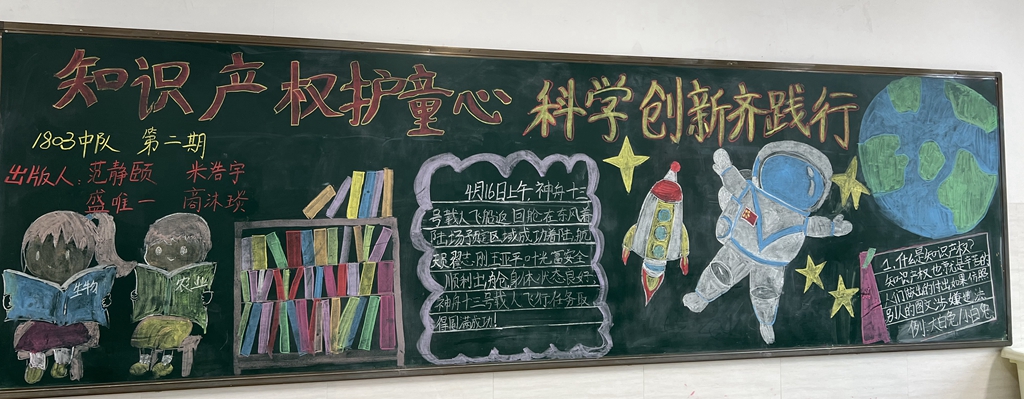 知识产权护童心 科学创新齐践行
1803中队 第二期
出版人：范静颐 朱浩宇
盛唯一 高沐
生物
农业
4月16日上午，神舟十三
号载人飞船返回舱在东风着
陆场预定区域成功着陆，航
刚 王亚平 叶光富安全
顺利出舱，身体状态良好
神舟十三号载人飞行任务取
得圆满成功！
1.什么是知识产权？
知识产权也就是
人们做出的付出如果仿照
别人的图文涉嫌
例：大白兔/小白兔